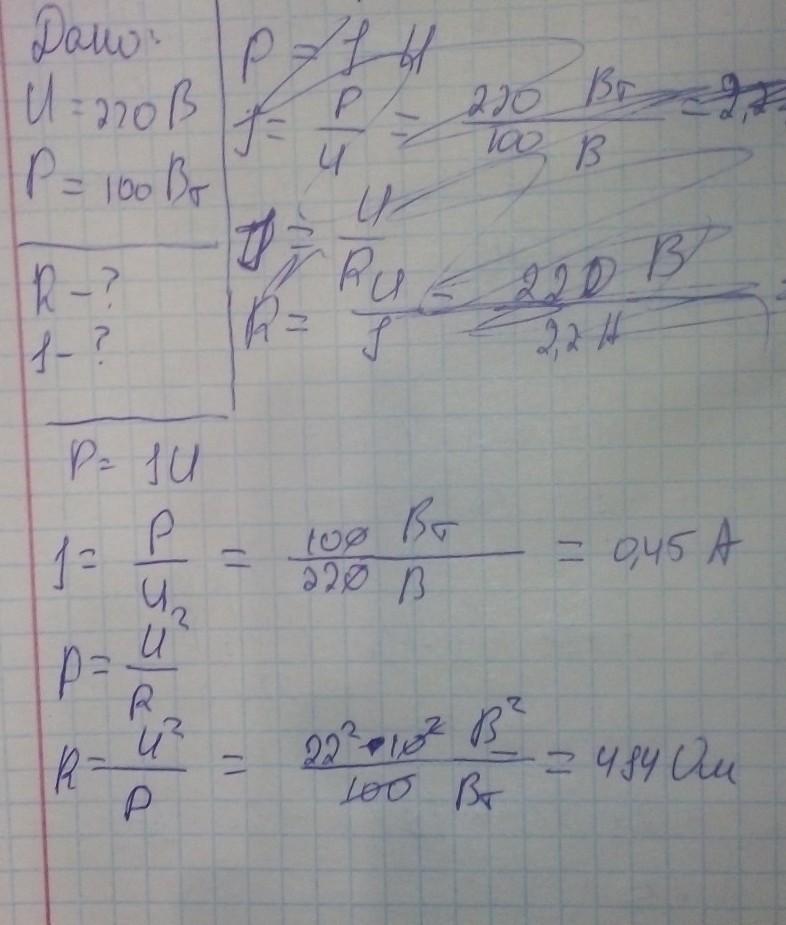 Дано:
U = 220 В
P = 100 Вт
R - ?
I - ?
P = I U
I = P/U = 220 Вт / 100 В = 2,2
I = U/R
R = U/I = 220 В / 2,2 А =
P = IU
I = P/U = 100 Вт / 220 В = 0,45 А
P = U²/R
R = U²/P = 22² · 10² В² / 100 Вт = 484 Ом